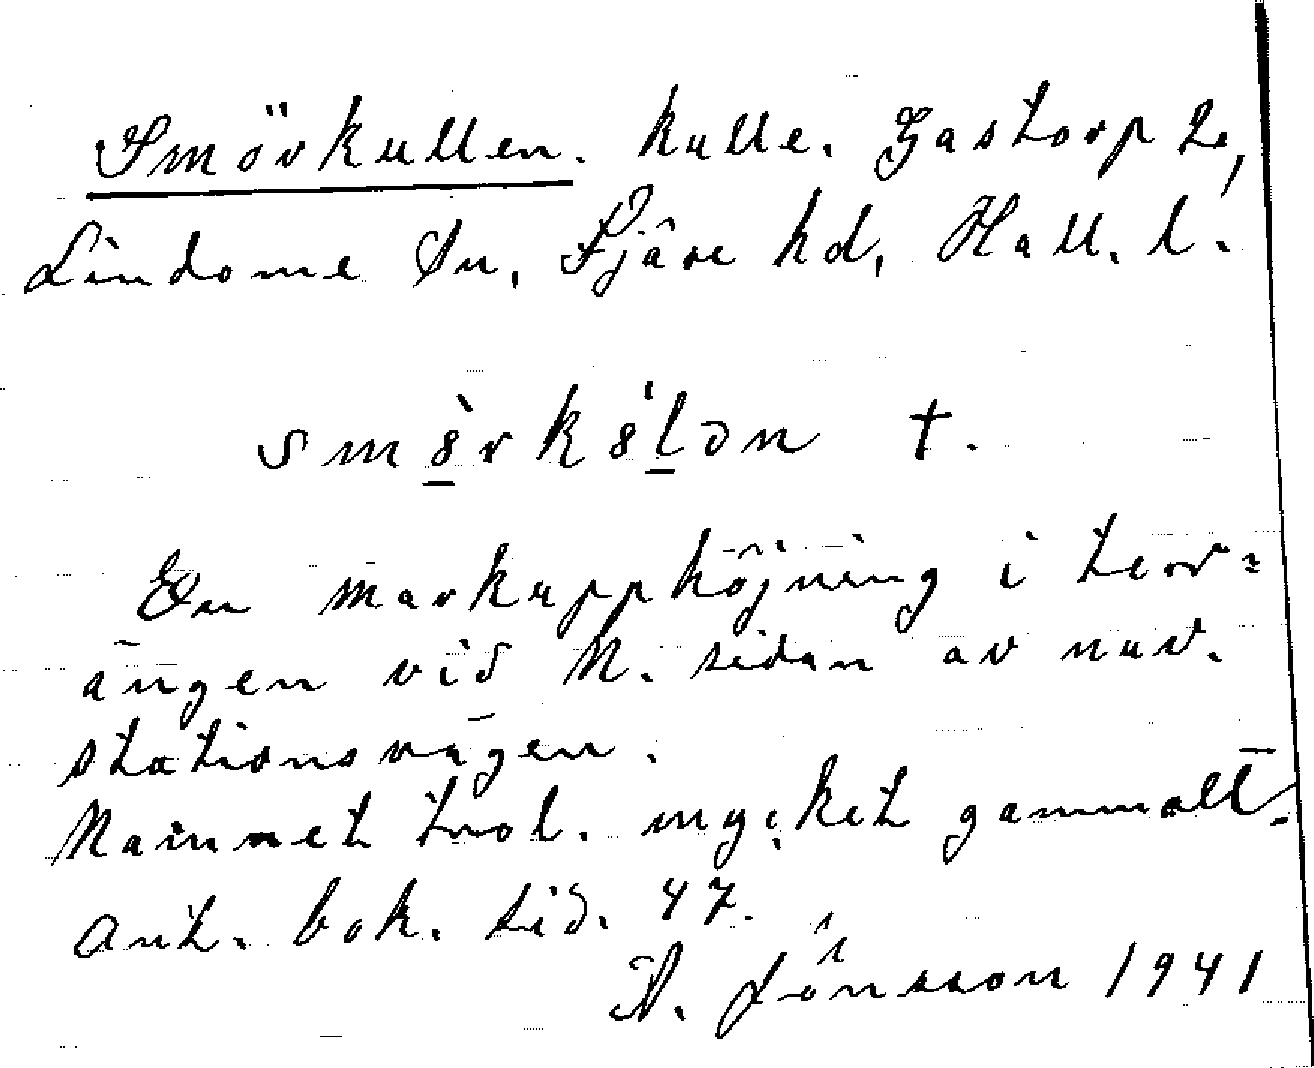 Smörkullen. kulle. Gastorp 2,
Lindome Sn, Fjäre hd, Hall. l.
smö̀rkö́lən †.
En markupphöjning i terr=
ängen vid N. sidan av nuv.
stationsvägen.
Namnet trol. mycket gammalt.
Ant. bok. sid. 47.
A. Jönsson 1941